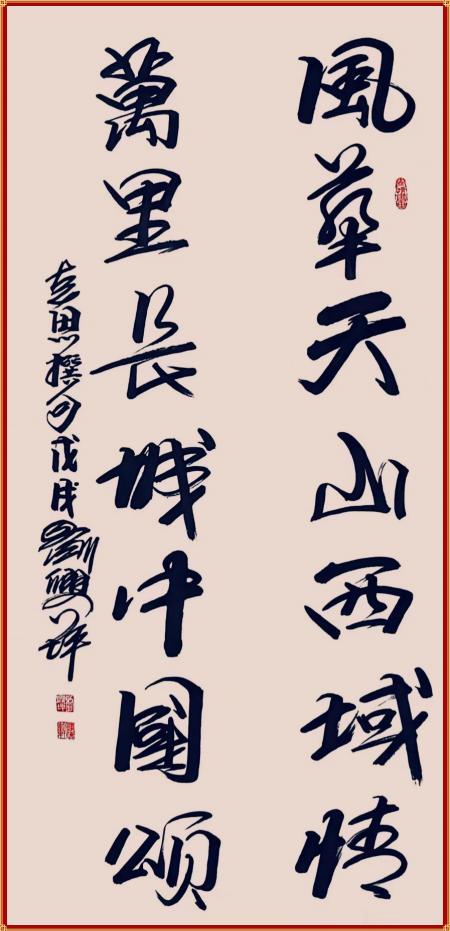 風華天山西域情
萬里長城中國頌
思撰句戊戌劉興坪